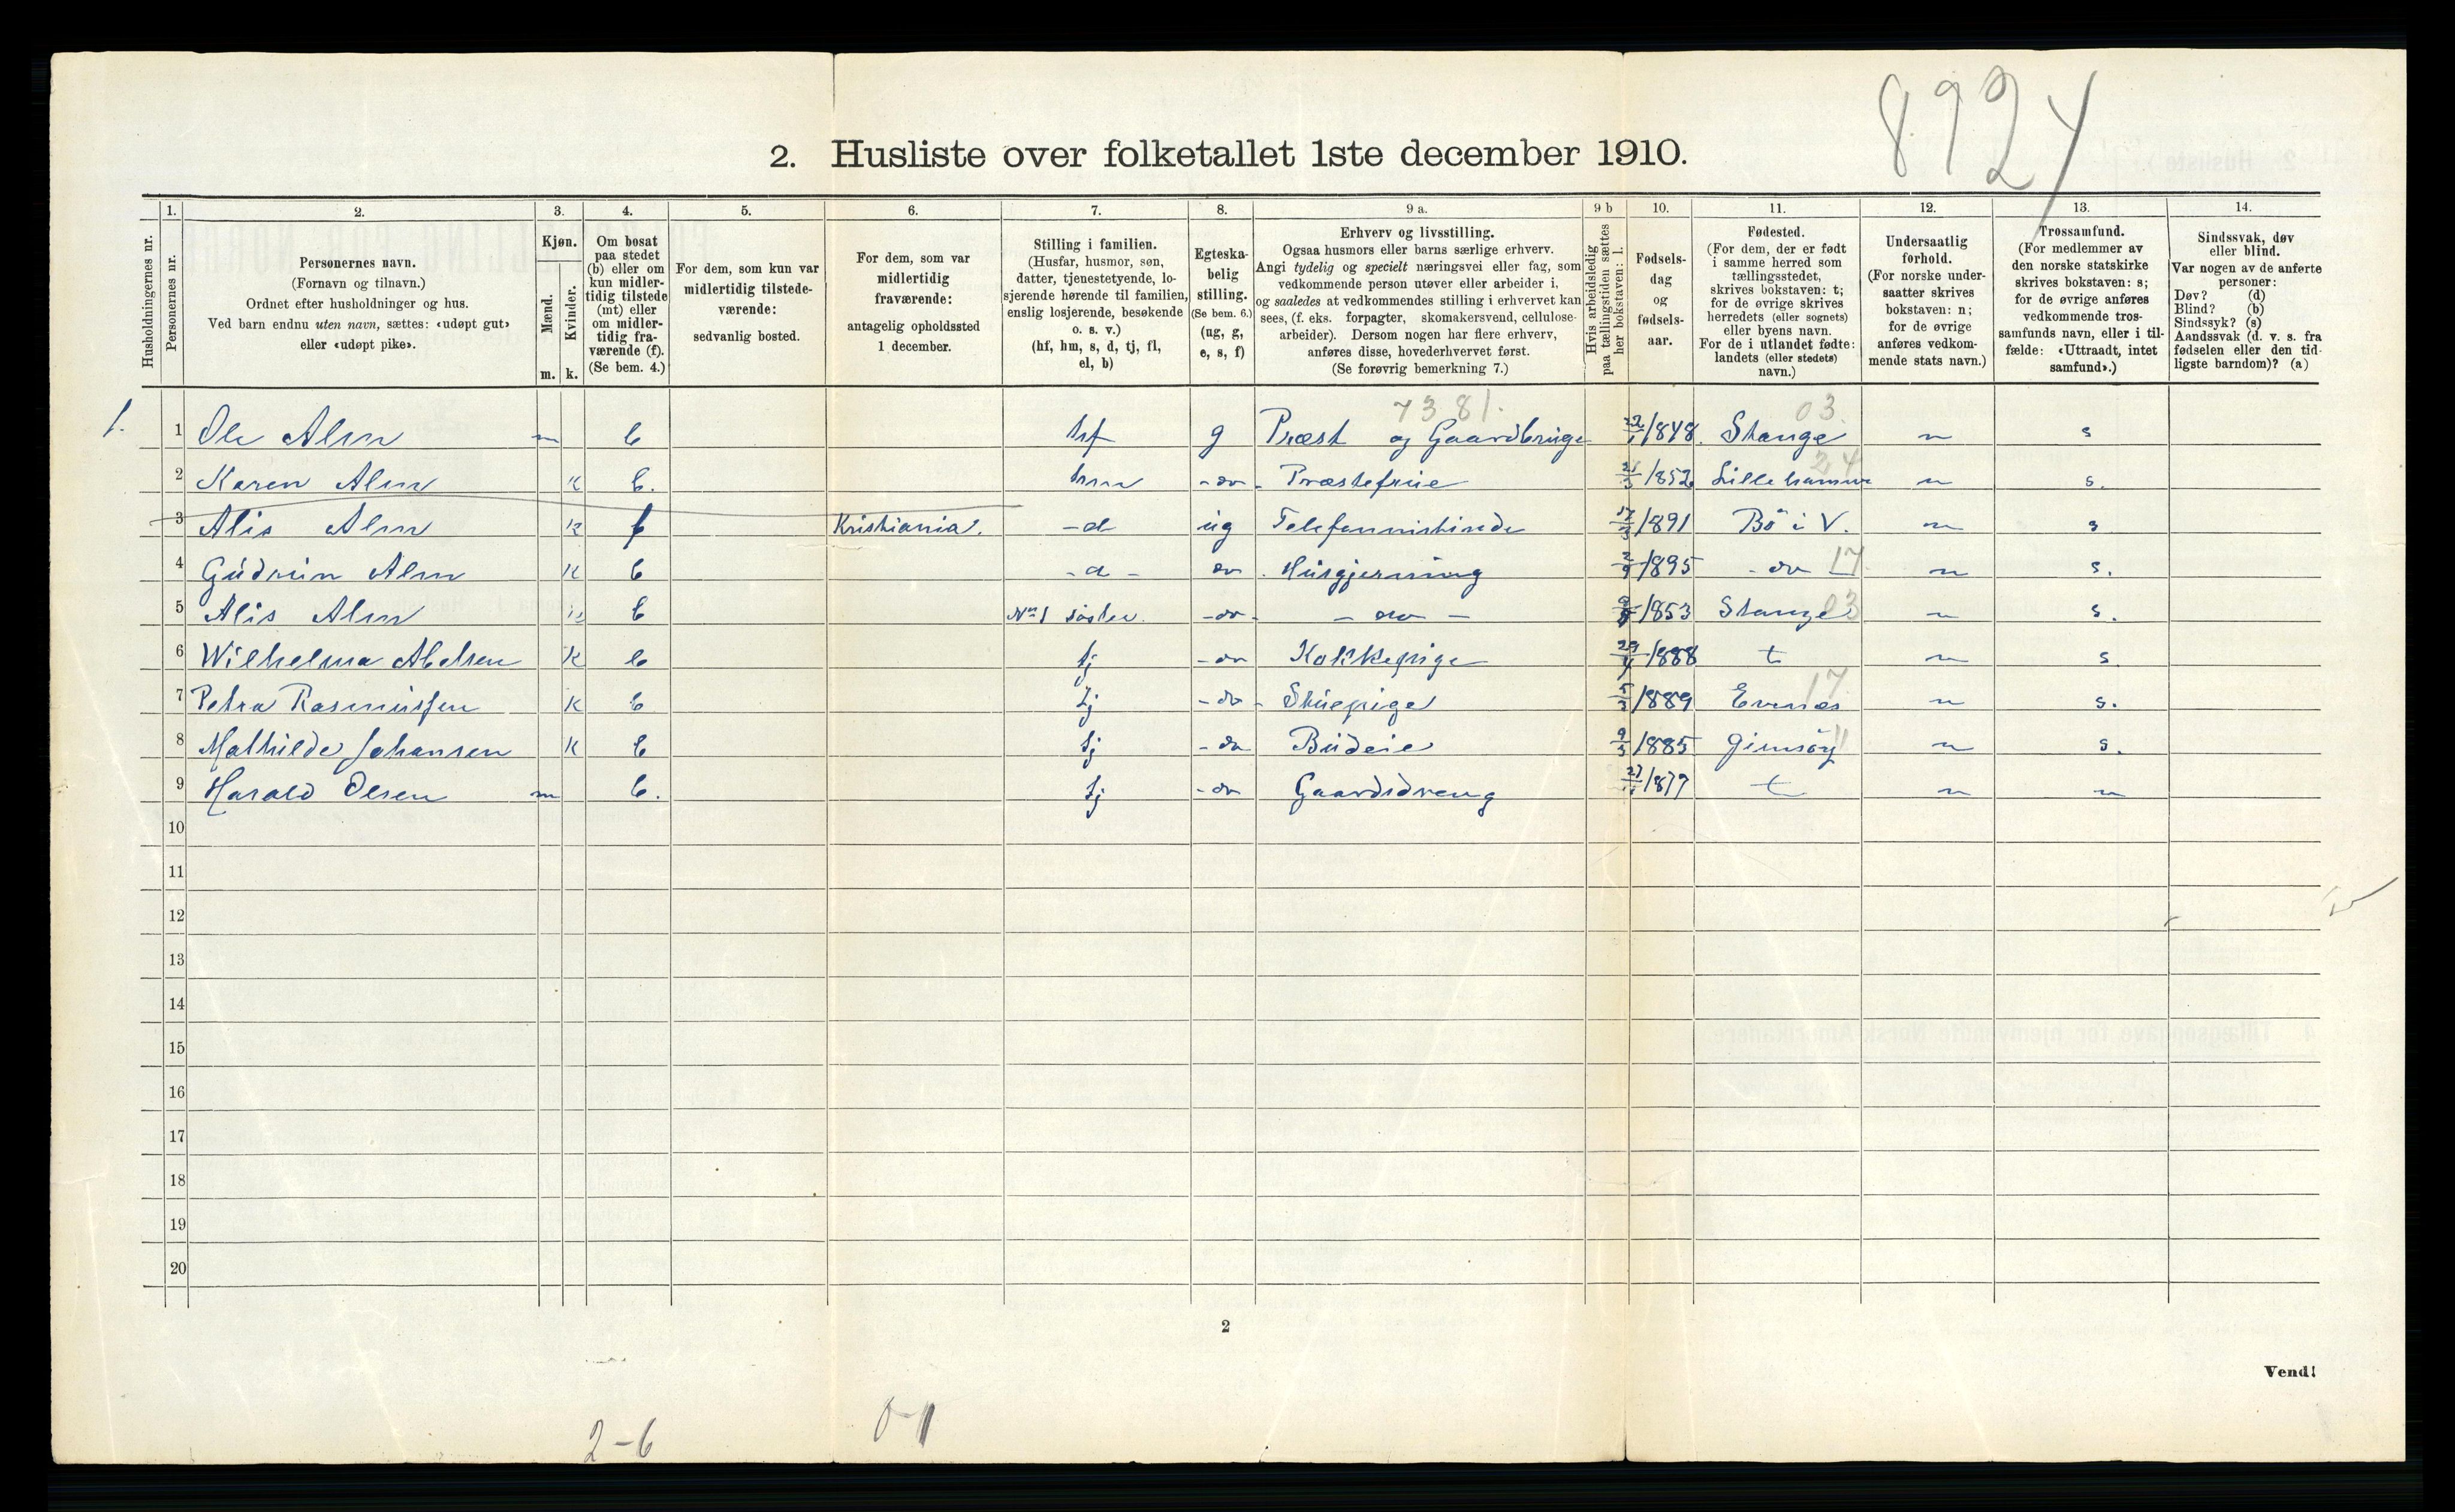 8924
2. Husliste over folketallet 1ste december 1910.
Husholdningernes nr.
1. Personernes nr.
2. Personernes navn. (Fornavn og tilnavn.) Ordnet efter husholdninger og hus. Ved barn endnu uten navn, sættes: «udøpt gut» eller «udøpt pike».
3. Kjøn. Mænd. m. Kvinder. k.
4. Om bosat paa stedet (b) eller om kun midlertidig tilstede (mt) eller om midlertidig fraværende (f). (Se bem. 4.)
5. For dem, som kun var midlertidig tilstedeværende: sedvanlig bosted.
6. For dem, som var midlertidig fraværende: antagelig opholdssted 1 december.
7. Stilling i familien. (Husfar, husmor, søn, datter, tjenestetyende, losjerende hørende til familien, enslig losjerende, besøkende o. s. v.) (hf, hm, s, d, tj, fl, el, b)
8. Egteskabelig stilling. (Se bem. 6.) (ug, g, e, s, f)
9 a. Erhverv og livsstilling. Ogsaa husmors eller barns særlige erhverv. Angi tydelig og specielt næringsvei eller fag, som vedkommende person utøver eller arbeider i, og saaledes at vedkommendes stilling i erhvervet kan sees, (f. eks. forpagter, skomakersvend, cellulosearbeider). Dersom nogen har flere erhverv, anføres disse, hovederhvervet først. (Se forøvrig bemerkning 7.)
9 b Hvis arbeidsledig paa tællingstiden sættes her bokstaven: l.
10. Fødselsdag og fødselsaar.
11. Fødested. (For dem, der er født i samme herred som tællingsstedet, skrives bokstaven: t; for de øvrige skrives herredets (eller sognets) eller byens navn. For de i utlandet fødte: landets (eller stedets) navn.)
12. Undersaatlig forhold. (For norske undersaatter skrives bokstaven: n; for de øvrige anføres vedkommende stats navn.)
13. Trossamfund. (For medlemmer av den norske statskirke skrives bokstaven: s; for de øvrige anføres vedkommende trossamfunds navn, eller i tilfælde: «Uttraadt, intet samfund».)
14. Sindssvak, døv eller blind. Var nogen av de anførte personer: Døv? (d) Blind? (b) Sindssyk? (s) Aandssvak (d. v. s. fra fødselen eller den tidligste barndom)? (a)
7381. 03.
1. 1 Ole Alm m b hf g Præst og Gaardbruge /1848. Stange n s
24
2 Karen Alm K b. hm - do - Præstefrue /1852 Lillehammer n s.
3 Alis Alm K f Kristiania. - d ug Telefonistinde 17/3 1891 Bö i V. n s
4 Gudrun Alm K b - d - do Husgjerning 2/9 1895 - do 17 n s.
5 Alis Alm K b No 1 søster - do - - do - /1853 Stange 03 n s.
6 Wilhelma Abelsen K b tj - do Kokkepige 29/4 1888 t n s.
7 Petra Rasmussen K b tj - do - Stuepige 5/3 1889 Evenes 17 n s.
8 Mathilde Johansen K b tj - do Budeie 9/3 1885 Gimsöy 11 n s.
9 Harald Olsen m b. tj - do Gaardsdreng /1877 t n n
10
11
12
13
14
15
16
17
18
19
20
2
Vend!
2-6 0-1